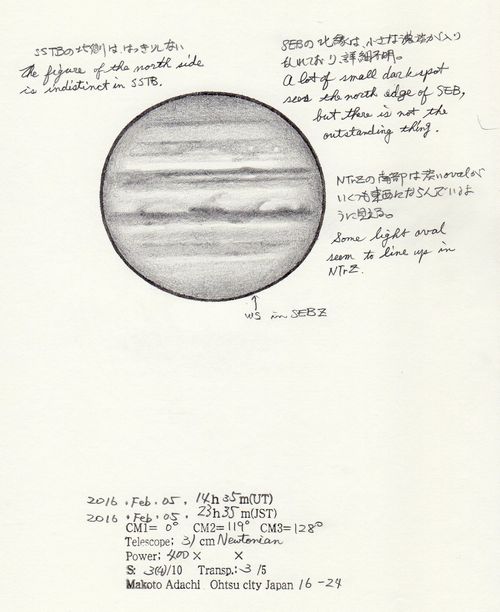 SSTBの北側は、はっきりしない
The figure of the north side
is indistinct in SSTB.
SEBの北縁は、小さな濃淡が入り
乱れており、詳細不明。
A lot of small dark spot
sees the north edge of SEB,
but there is not the
outstanding thing.
NTrZの南部は淡いovalが
いくつも東西にならんでいるよ
うに見える。
Some light oval
seem to line up in
NTrZ.
↑
WS in SEBZ
2016 . Feb. 05 . 14h 35m(UT)
2016 . Feb. 05 . 23h 35m(JST)
CM1= 0° CM2= 119° CM3= 128°
Telescope: 31 cm Newtonian
Power: 400 × ×
S: 3(4)/10 Transp.: 3 /5
Makoto Adachi Ohtsu city Japan 16-24